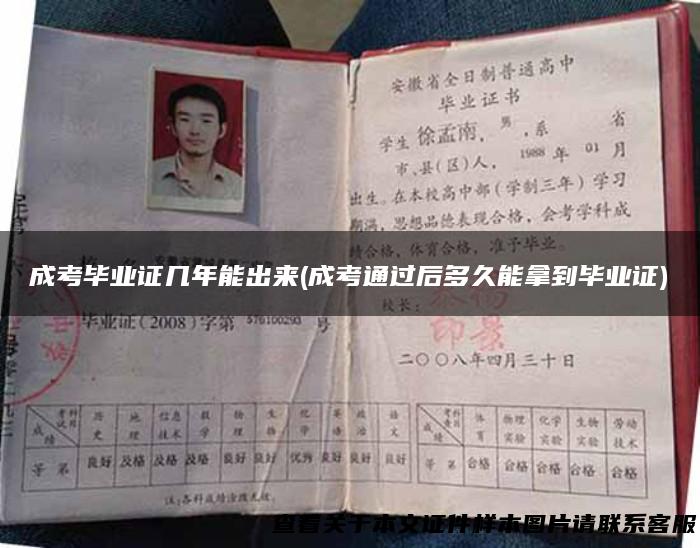 安徽省全日制普通高中
毕业证书
学生 徐孟南，男，系 省
市、县(区)人，1988年01月
出生。在本校高中部（学制三年）学习
期满，思想品德表现合格，会考学科成
绩合格，体育合格，准予毕业。
成考毕业证几年能出来(成考通过后多久能拿到毕业证)
校长：
毕业证(2008)字第576100293号
二〇〇八年四月三十日
考试科目 历史 地理 信息技术 数学 物理 生物 化学 英语 政治 语文
成绩
等第 良好 及格 及格 良好 良好 良好 优秀 良好 良好 良好
考查科目 体育 物理实验 化学实验 生物实验 劳动技术
成绩
等第 合格 合格 合格 合格 合格
注:各科成绩涂改无效。
查看关于本文证件样本图片请联系客服